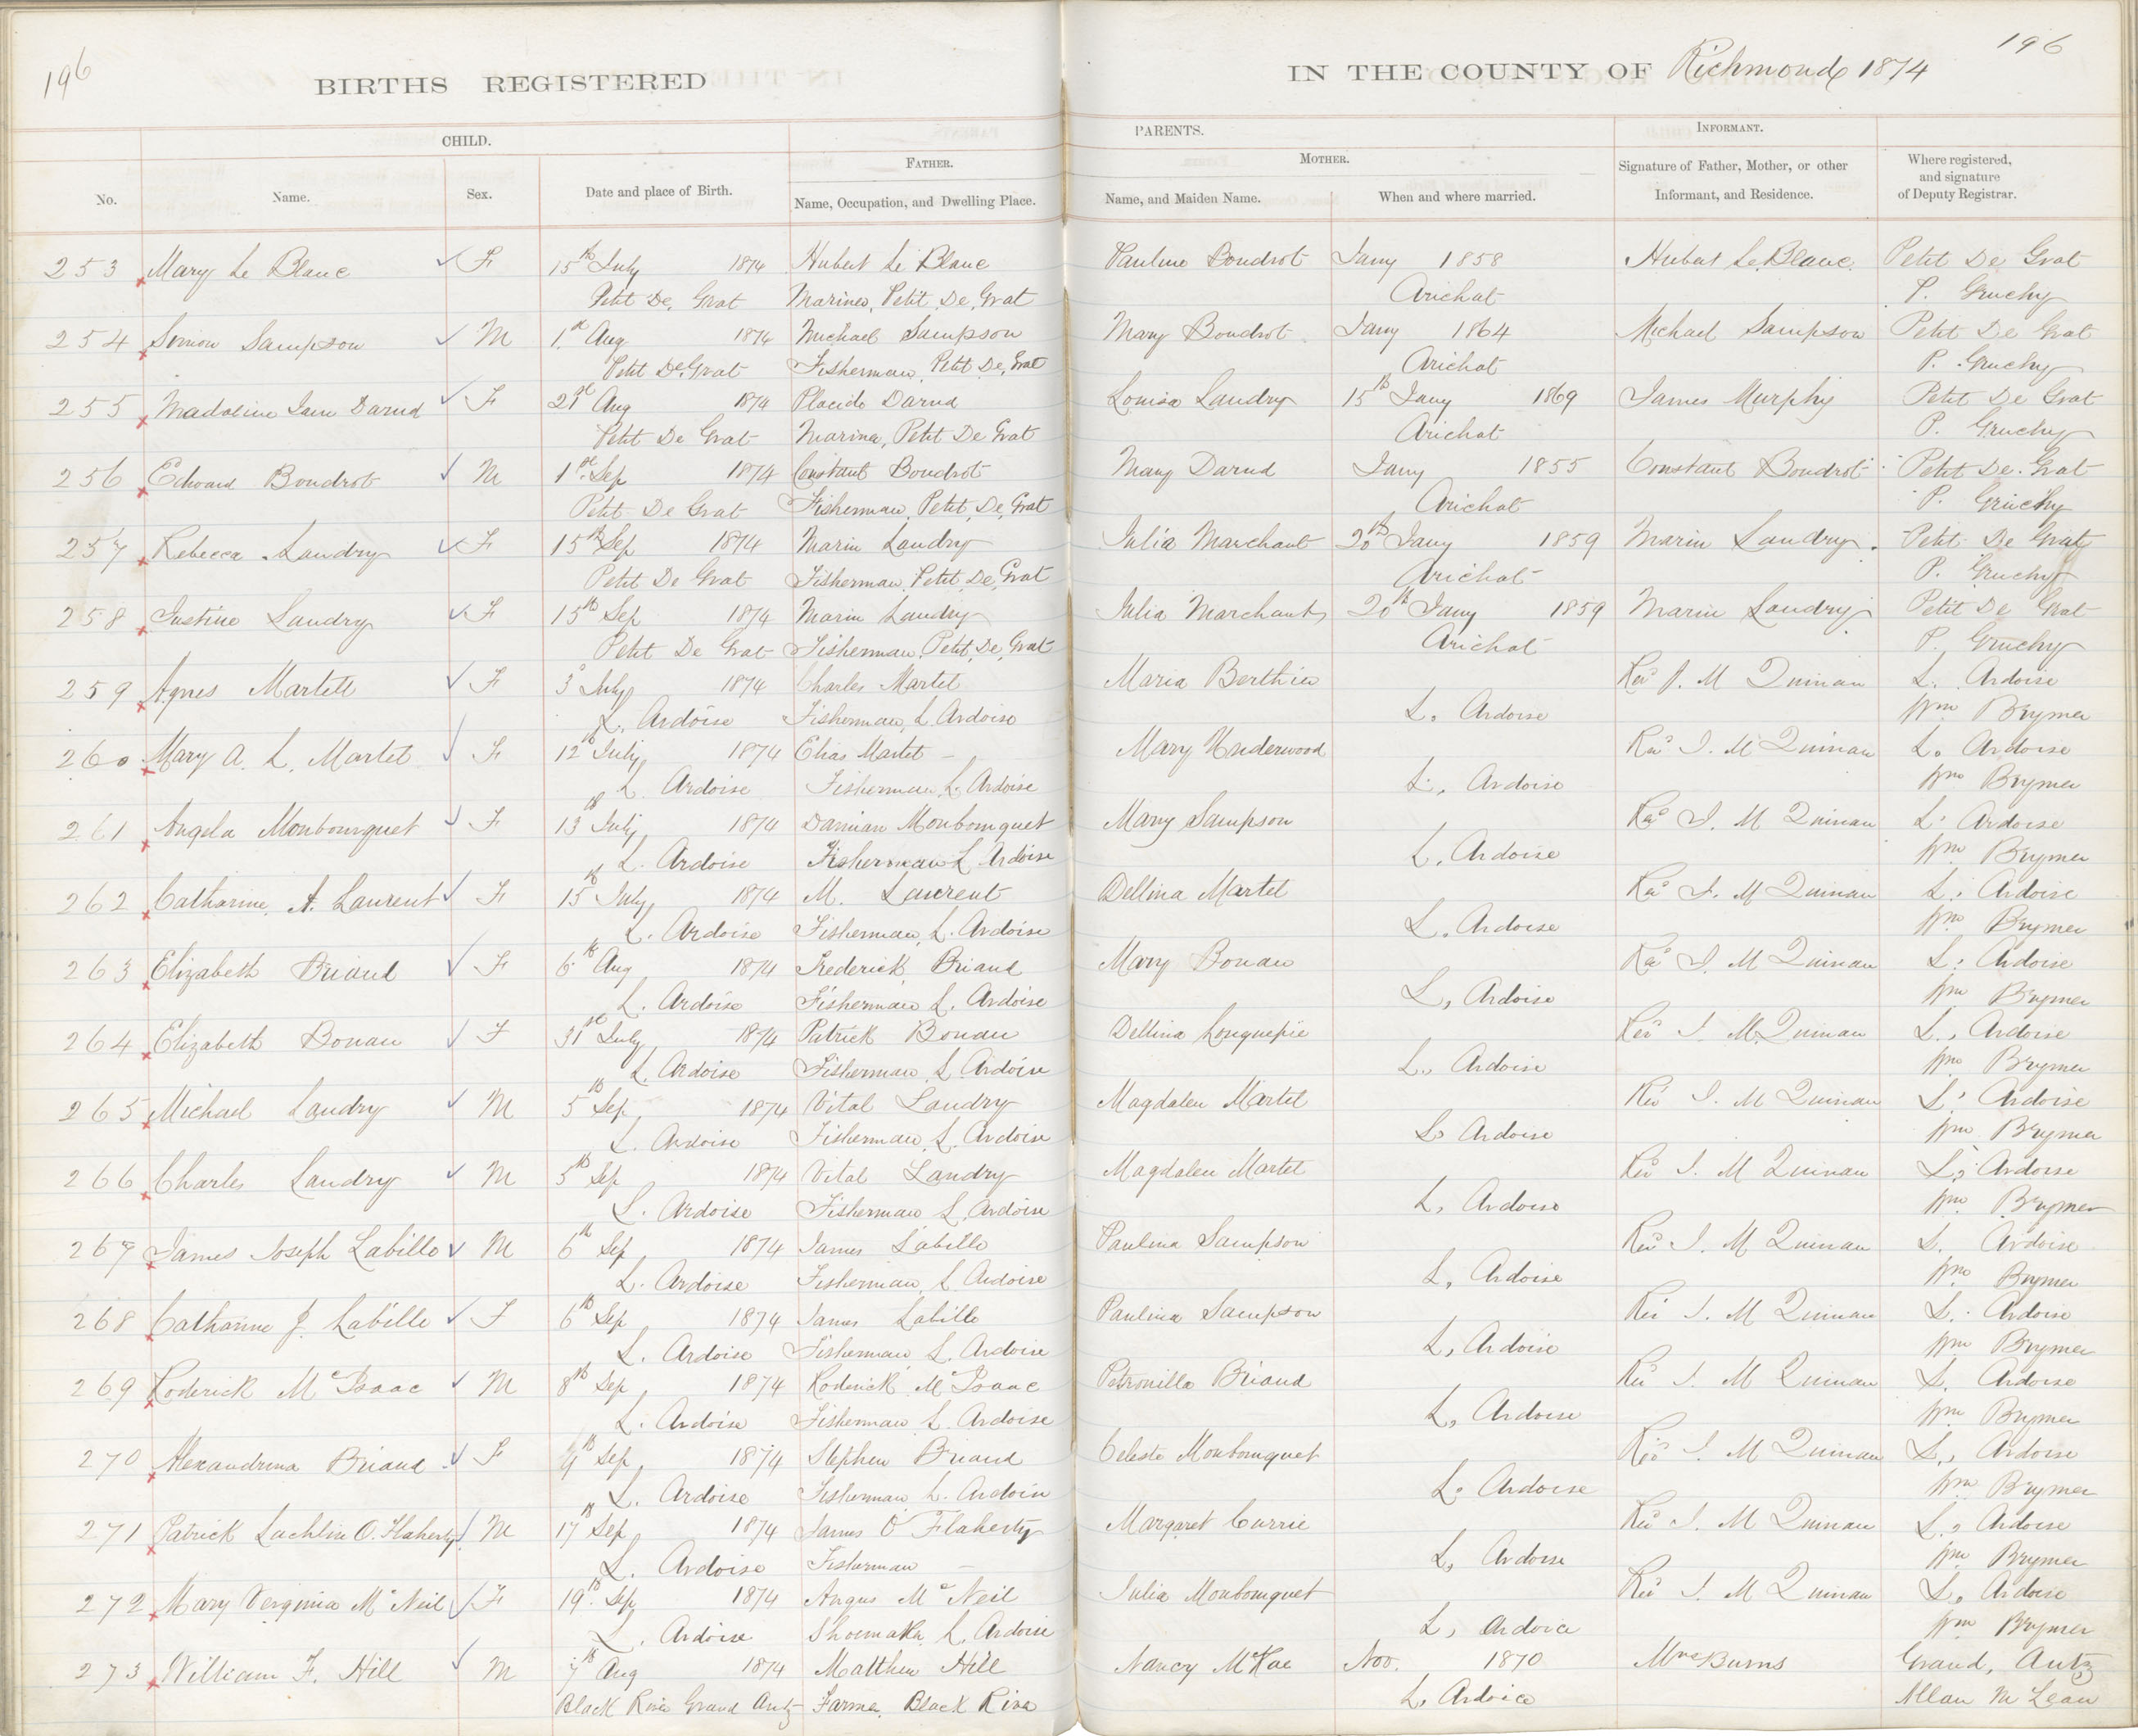 196
196
BIRTHS REGISTERED
IN THE COUNTY OF Richmond 1874
CHILD.
PARENTS.
INFORMANT.
FATHER.
MOTHER.
No.
Name.
Sex.
Date and place of Birth.
Name, Occupation, and Dwelling Place.
Name, and Maiden Name.
When and where married.
Signature of Father, Mother, or other
Informant, and Residence.
Where registered,
and signature
of Deputy Registrar.
253 Mary Le Blanc F 15th July 1874 Hubert Le Blanc Pauline Boudrot Jany 1858 Hubert Le Blanc Petit De Grat
Petit De Grat Mariner, Petit De Grat Arichat P. Gruchy
254 Simon Sampson M 1st Aug 1874 Michael Sampson Mary Boudrot Jany 1864 Michael Sampson Petit De Grat
Petit De Grat Fisherman, Petit De Grat Arichat P. Gruchy
255 Madaline Jane Darud F 21st Aug 1874 Placide Darud Louisa Landry 15th Jany 1869 James Murphy Petit De Grat
Petit De Grat Marina, Petit De Grat Arichat P. Gruchy
256 Edward Boudrot M 1st Sep 1874 Constant Boudrot Mary Darud Jany 1855 Constant Boudrot Petit De Grat
Petit De Grat Fisherman, Petit De Grat Arichat P. Gruchy
257 Rebecca Landry F 15th Sep 1874 Marin Landry Julia Marchant 20th Jany 1859 Marin Landry Petit De Grat
Petit De Grat Fisherman, Petit De Grat Arichat P. Gruchy
258 Justine Landry F 15th Sep 1874 Marin Landry Julia Marchant 20th Jany 1859 Marin Landry Petit De Grat
Petit De Grat Fisherman, Petit De Grat Arichat P. Gruchy
259 Agnes Martell F 3d July 1874 Charles Martet Maria Berthier Revd J. M Quinan L. Ardoise
L. Ardoise Fisherman, L Ardoise L. Ardoise Wm Brymer
260 Mary A. L. Martet F 12th July 1874 Elias Martet Mary Underwood Revd J. M Quinan L. Ardoise
L. Ardoise Fisherman, L. Ardoise L. Ardoise Wm Brymer
261 Angela Monbourquet F 13th July 1874 Damian Monbourquet Mary Sampson Revd J. M Quinan L. Ardoise
L. Ardoise Fisherman L Ardoise L. Ardoise Wm Brymer
262 Catharine A. Laurent F 15th July 1874 M. Laurent Dellina Martet Revd J. M Quinan L. Ardoise
L. Ardoise Fisherman, L. Ardoise L. Ardoise Wm Brymer
263 Elizabeth Briand F 6th Aug 1874 Frederick Briand Mary Bonau Revd J. M Quinan L. Ardoise
L. Ardoise Fisherman L. Ardoise L, Ardoise Wm Brymer
264 Elizabeth Bonau F 31st July 1874 Patrick Bonau Dellina Longuepie Revd J. M. Quinan L. Ardoise
L. Ardoise Fisherman, L. Ardoise L. Ardoise Wm Brymer
265 Michael Landry M 5th Sep 1874 Vital Landry Magdalen Martet Rev J. M Quinan L. Ardoise
L. Ardoise Fisherman, L. Ardoise L. Ardoise Wm Brymer
266 Charles Landry M 5th Sep 1874 Vital Landry Magdalen Martet Rev J. M Quinan L. Ardoise
L. Ardoise Fisherman L. Ardoise L, Ardoise Wm Brymer
267 James Joseph Labille M 6th Sep 1874 James Labille Paulina Sampson Revd J. M Quinan L. Ardoise
L. Ardoise Fisherman, L. Ardoise L, Ardoise Wm Brymer
268 Catharine J. Labille F 6th Sep 1874 James Labille Paulina Sampson Rev J. M Quinan L. Ardoise
L. Ardoise Fisherman L. Ardoise L, Ardoise Wm Brymer
269 Roderick Mc Isaac M 8th Sep 1874 Roderick Mc Isaac Petronilla Briand Rev J. M Quinan L. Ardoise
L. Ardoise Fisherman L. Ardoise L, Ardoise Wm Brymer
270 Alexandrina Briand F 9th Sep 1874 Stephen Briand Celeste Monbourquet Revd J. M Quinan L. Ardoise
L. Ardoise Fisherman, L. Ardoise L. Ardoise Wm Brymer
271 Patrick Lachlin O. Flaherty M 17th Sep 1874 James O'Flaherty Margaret Currie Rev J. M Quinan L. Ardoise
L. Ardoise Fisherman L, Ardoise Wm Brymer
272 Mary Verginia Mc Neil F 19th Sep 1874 Angus Mc Neil Julia Monbourquet Rev J. M Quinan L. Ardoise
L. Ardoise Shoemaker L. Ardoise L, Ardoice Wm Brymer
273 William F. Hill M 7th Aug 1874 Matthew Hill Nancy McKae Nov. 1870 Mrs Burns Grand, Antz
Black River Grand Antz Farmer, Black River L, Ardoice Allan McLean